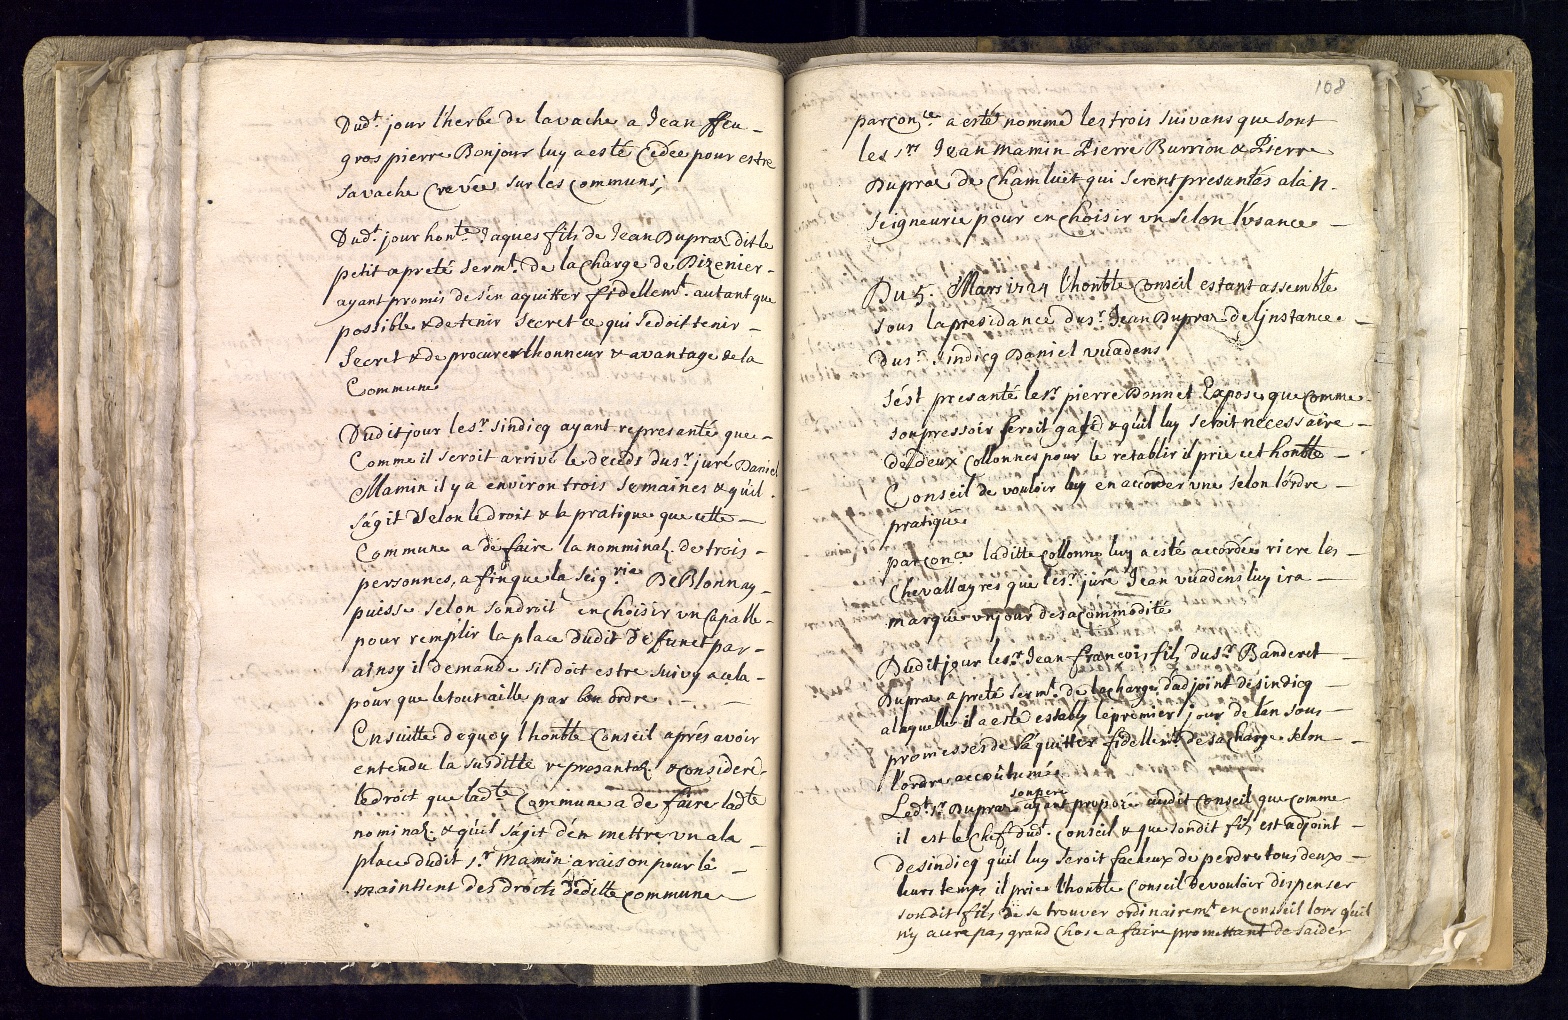 Dudt. jour l'herbe de la vache a Jean ffeu -
gros pierre Bonjour luy a esté Cedée pour estre
sa vache Crevée sur les Communs;
Dudt. jour honte. Jaques fils de Jean Dupraz dit le
petit a preté sermt. de la Charge de Dizenier -
ayant promis de s'en aquitter fidellemt. autant que
possible & de tenir secret ce qui se doit tenir -
Secret & de procurer l'honneur & avantage de la
Commune
Dudit jour le sr. sindicq ayant represanté que -
Comme il seroit arrivé le deceds du sr. juré Daniel
Mamin il y a environ trois semaines & qu'il -
s'agit selon le droit & la pratique que cette -
Commune a de faire la nominaõn de trois -
personnes, a fin que la Seigrie De Blonnay -
puisse selon son droit en choisir un Capable -
pour remplir la place dudit Defunct par -
ainsy il demande s'il doit estre suivy a cela -
pour que le tout aille par bon ordre - -
Ensuitte de quoy l'honble Conseil aprés avoir
entendu la susditte represantaõn & consideré
le droit que ladte Commune a de faire ladte
nominaõn & qu'il s'agit d'en mettre un a la -
place dudit sr. Mamin a raison pour le -
maintient des droits deditte Commune
108
par conce. a esté nommé les trois suivans que sont
les srs Jean Mamin Pierre Burrion & Pierre
Dupraz de Chamluet qui seront presantés a la n.
Seigneurie pour en choisir un selon l'usance -
Du 5. Mars 1724 l'honble Conseil estant assemblé
sous la presidance du sr. Jean Dupraz de l'instance -
du sr. sindicq Daniel vuadens
s'est presanté le sr. pierre Bonnet Expose que Comme
son pressoir seroit gasté & qu'il luy seroit necessaire -
de deux Collonnes pour le retablir il prie cet honble -
Conseil de vouloir luy en accorder une selon l'ordre -
pratiqué
par conce laditte Collonne luy a esté accordée riere les -
Chevallayres que le sr. juré Jean vuadens luy ira -
marquer un jour de sa Commodité
Dudit jour le sr. Jean francois fils du sr. Banderet -
Dupraz a preté sermt. de la charge d'adjoint de sindicq -
a laquelle il a esté estably le premier jour de l'an sous -
promesses de s'aquitter fidellemt. de sa Charge selon -
l'ordre accoutumée
son pere
Ledt. sr. Dupraz ayant proposé audit Conseil que comme
il est le Chef dudt. Conseil & que sondit fils est adjoint -
de sindicq qu'il luy seroit facheux de perdre tous deux -
leurs temps il prie l'honble Conseil de vouloir dispenser
sondit fils de se trouver ordinairemt en Conseil lors qu'il
n'y aura pas grand Chose a faire promettant de s'aider